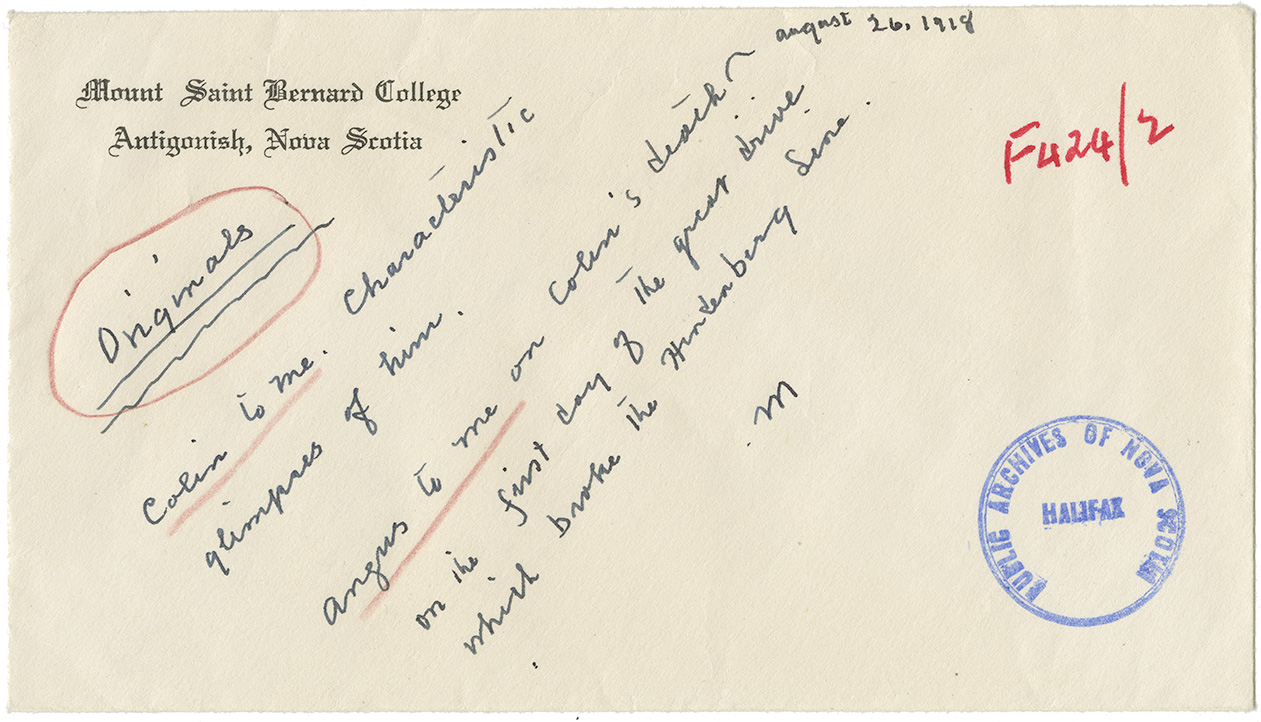 Mount Saint Bernard College
Antigonish, Nova Scotia
august 26, 1918
F424/2
Originals
Colin to me. Characteristic
glimpses of him.
Angus to me on Colin's death
on the first day of the great drive
which broke the Hindenberg Line.
M
PUBLIC ARCHIVES OF NOVA SCOTIA
HALIFAX